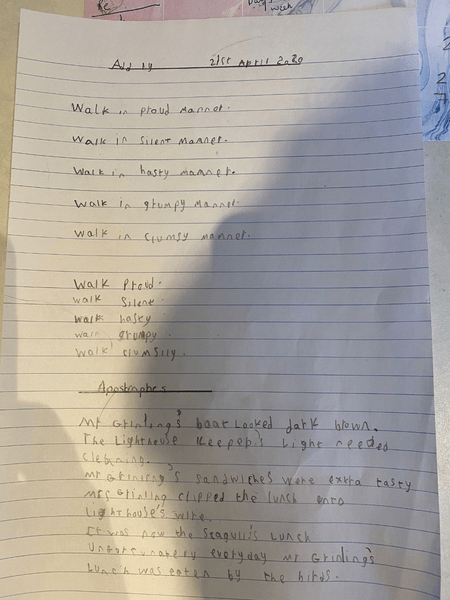 Day's
week
Add ly 21st April 2020
Walk in proud manner.
Walk in silent manner.
Walk in hasty manner.
Walk in grumpy manner.
Walk in clumsy manner.
Walk Proud.
walk Silent.
walk hasty.
walk grumpy.
walk clumsily.
Apostrophes
Mr Grinling's boat Looked dark brown.
The Lighthouse Keeper's Light needed
cleaning.
Mr Grinling's Sandwiches were extra tasty
Mrs Grinling clipped the lunch onto
Lighthouse's wire.
It was now the Seagull's Lunch
Unfortunately everyday Mr Grinling's
Lunch was eaten by the birds.